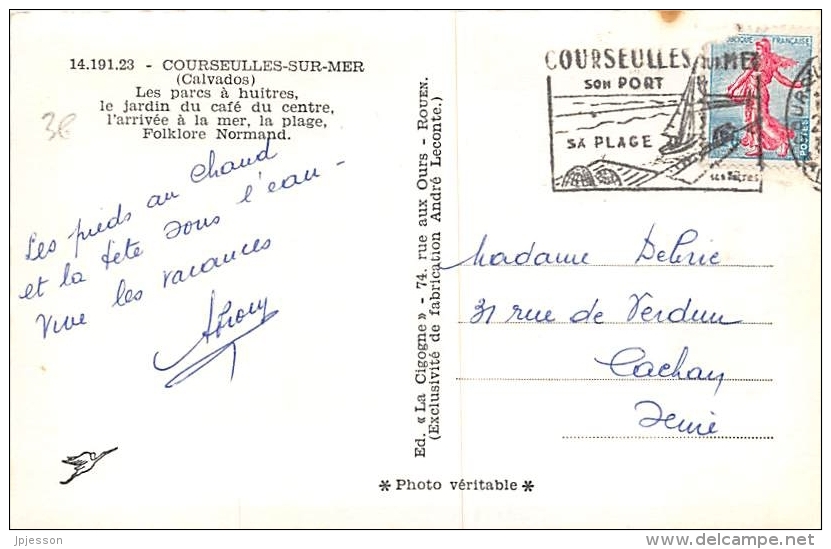 14.191.23 - COURSEULLES-SUR-MER
(Calvados)
Les parcs à huitres,
le jardin du café du centre,
l'arrivée à la mer, la plage,
Folklore Normand.
3€
Les pieds au chaud
et la tête sous l'eau -
Vive les vacances
Ed. « La Cigogne » - 74, rue aux Ours - ROUEN.
(Exclusivité de fabrication André Leconte.)
COURSEULLES SUR MER
SON PORT
SA PLAGE
SES HUITRES
FRANÇAISE
POSTES
Madame
31 rue de Verdun
Cachan
Seine
* Photo véritable *
jpjesson
delcampe.net